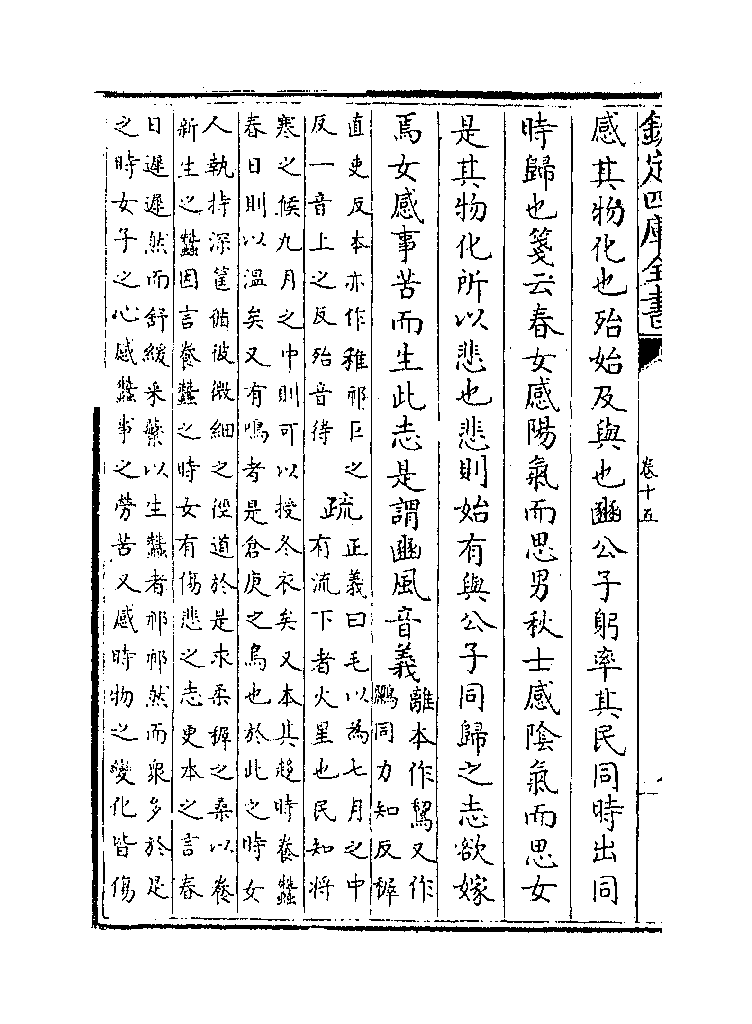 欽定四庫全書
卷十五
感其物化也殆始及與也豳公子躬率其民同時出同
時歸也箋云春女感陽氣而思男秋士感陰氣而思女
是其物化所以悲也悲則始有與公子同歸之志欲嫁
焉女感事苦而生此志是謂豳風音義
離本作鸎又作
鸝同力知反穉
直吏反本亦作稚祁巨之
反一音上之反殆音待
疏
正義曰毛以為七月之中
有流下者火星也民知將
寒之候九月之中則可以授冬衣矣又本其趍時養蠶
春日則以溫矣又有鳴者是倉庚之鳥也於此之時女
人執持深筐循彼微細之徑道於是求柔穉之桑以養
新生之蠶因言養蠶之時女有傷悲之志更本之言春
日遲遲然而舒緩采蘩以生蠶者祁祁然而衆多於是
之時女子之心感蠶事之勞苦又感時物之變化皆傷